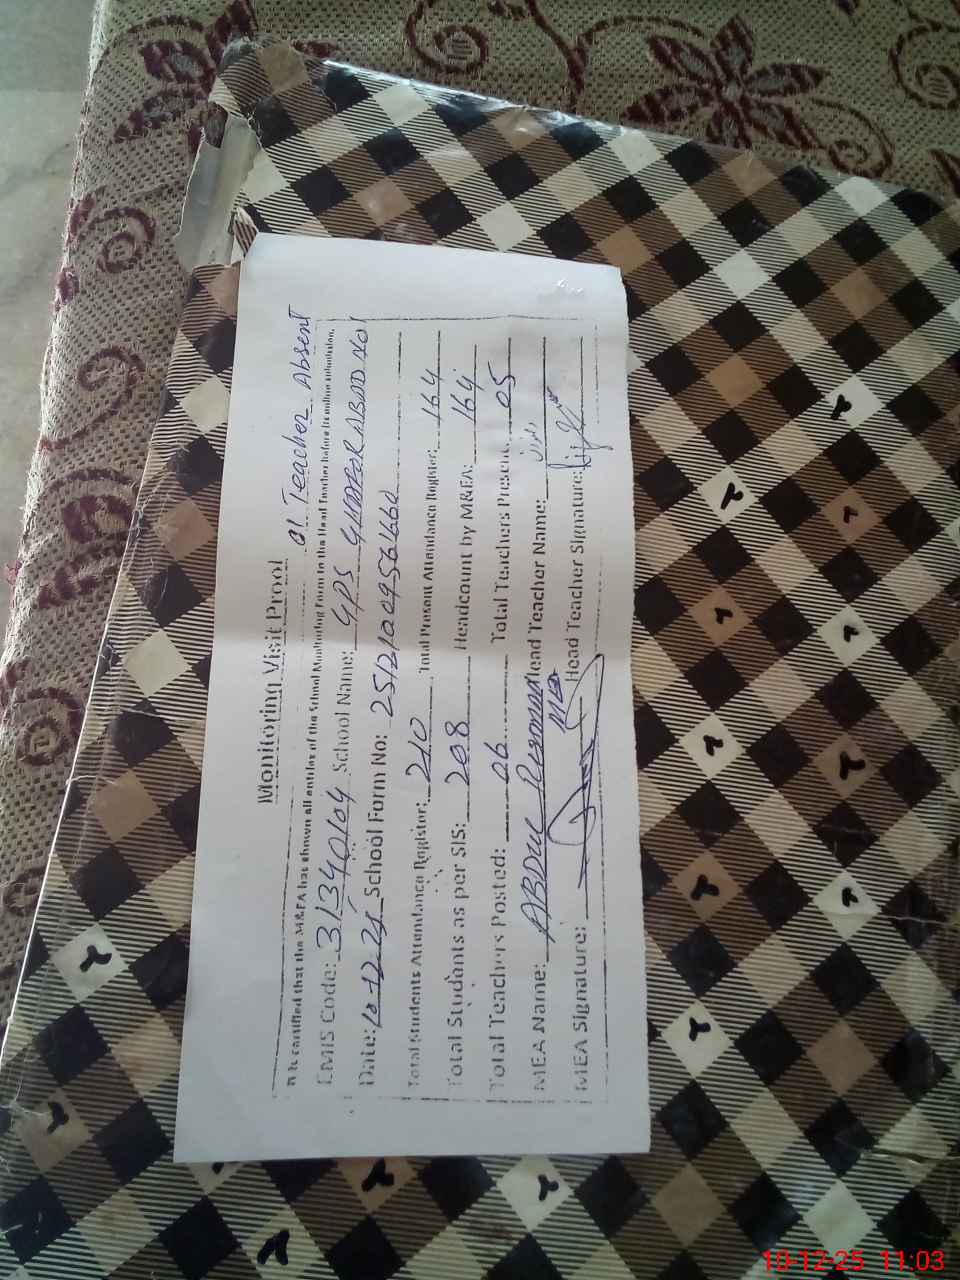 Monitoring Visit Proof
01 Teacher Absent
It is certified that the M&EA has shown all entries of the School Monitoring Form to the Head Teacher before its online submission.
EMIS Code: 31340104 School Name: GPS GHAFOR ABAD NO1
Date: 10-12-25 School Form No: 2512100956166
Total Students Attendance Register: 210 Total Present Attendance Register: 164
Total Students as per SIS: 208 Headcount by M&EA: 164
Total Teachers Posted: 06 Total Teachers Present: 05
MEA Name: ABDUL Rehman Head Teacher Name:
MEA Signature: Head Teacher Signature:
10-12-25 11:03